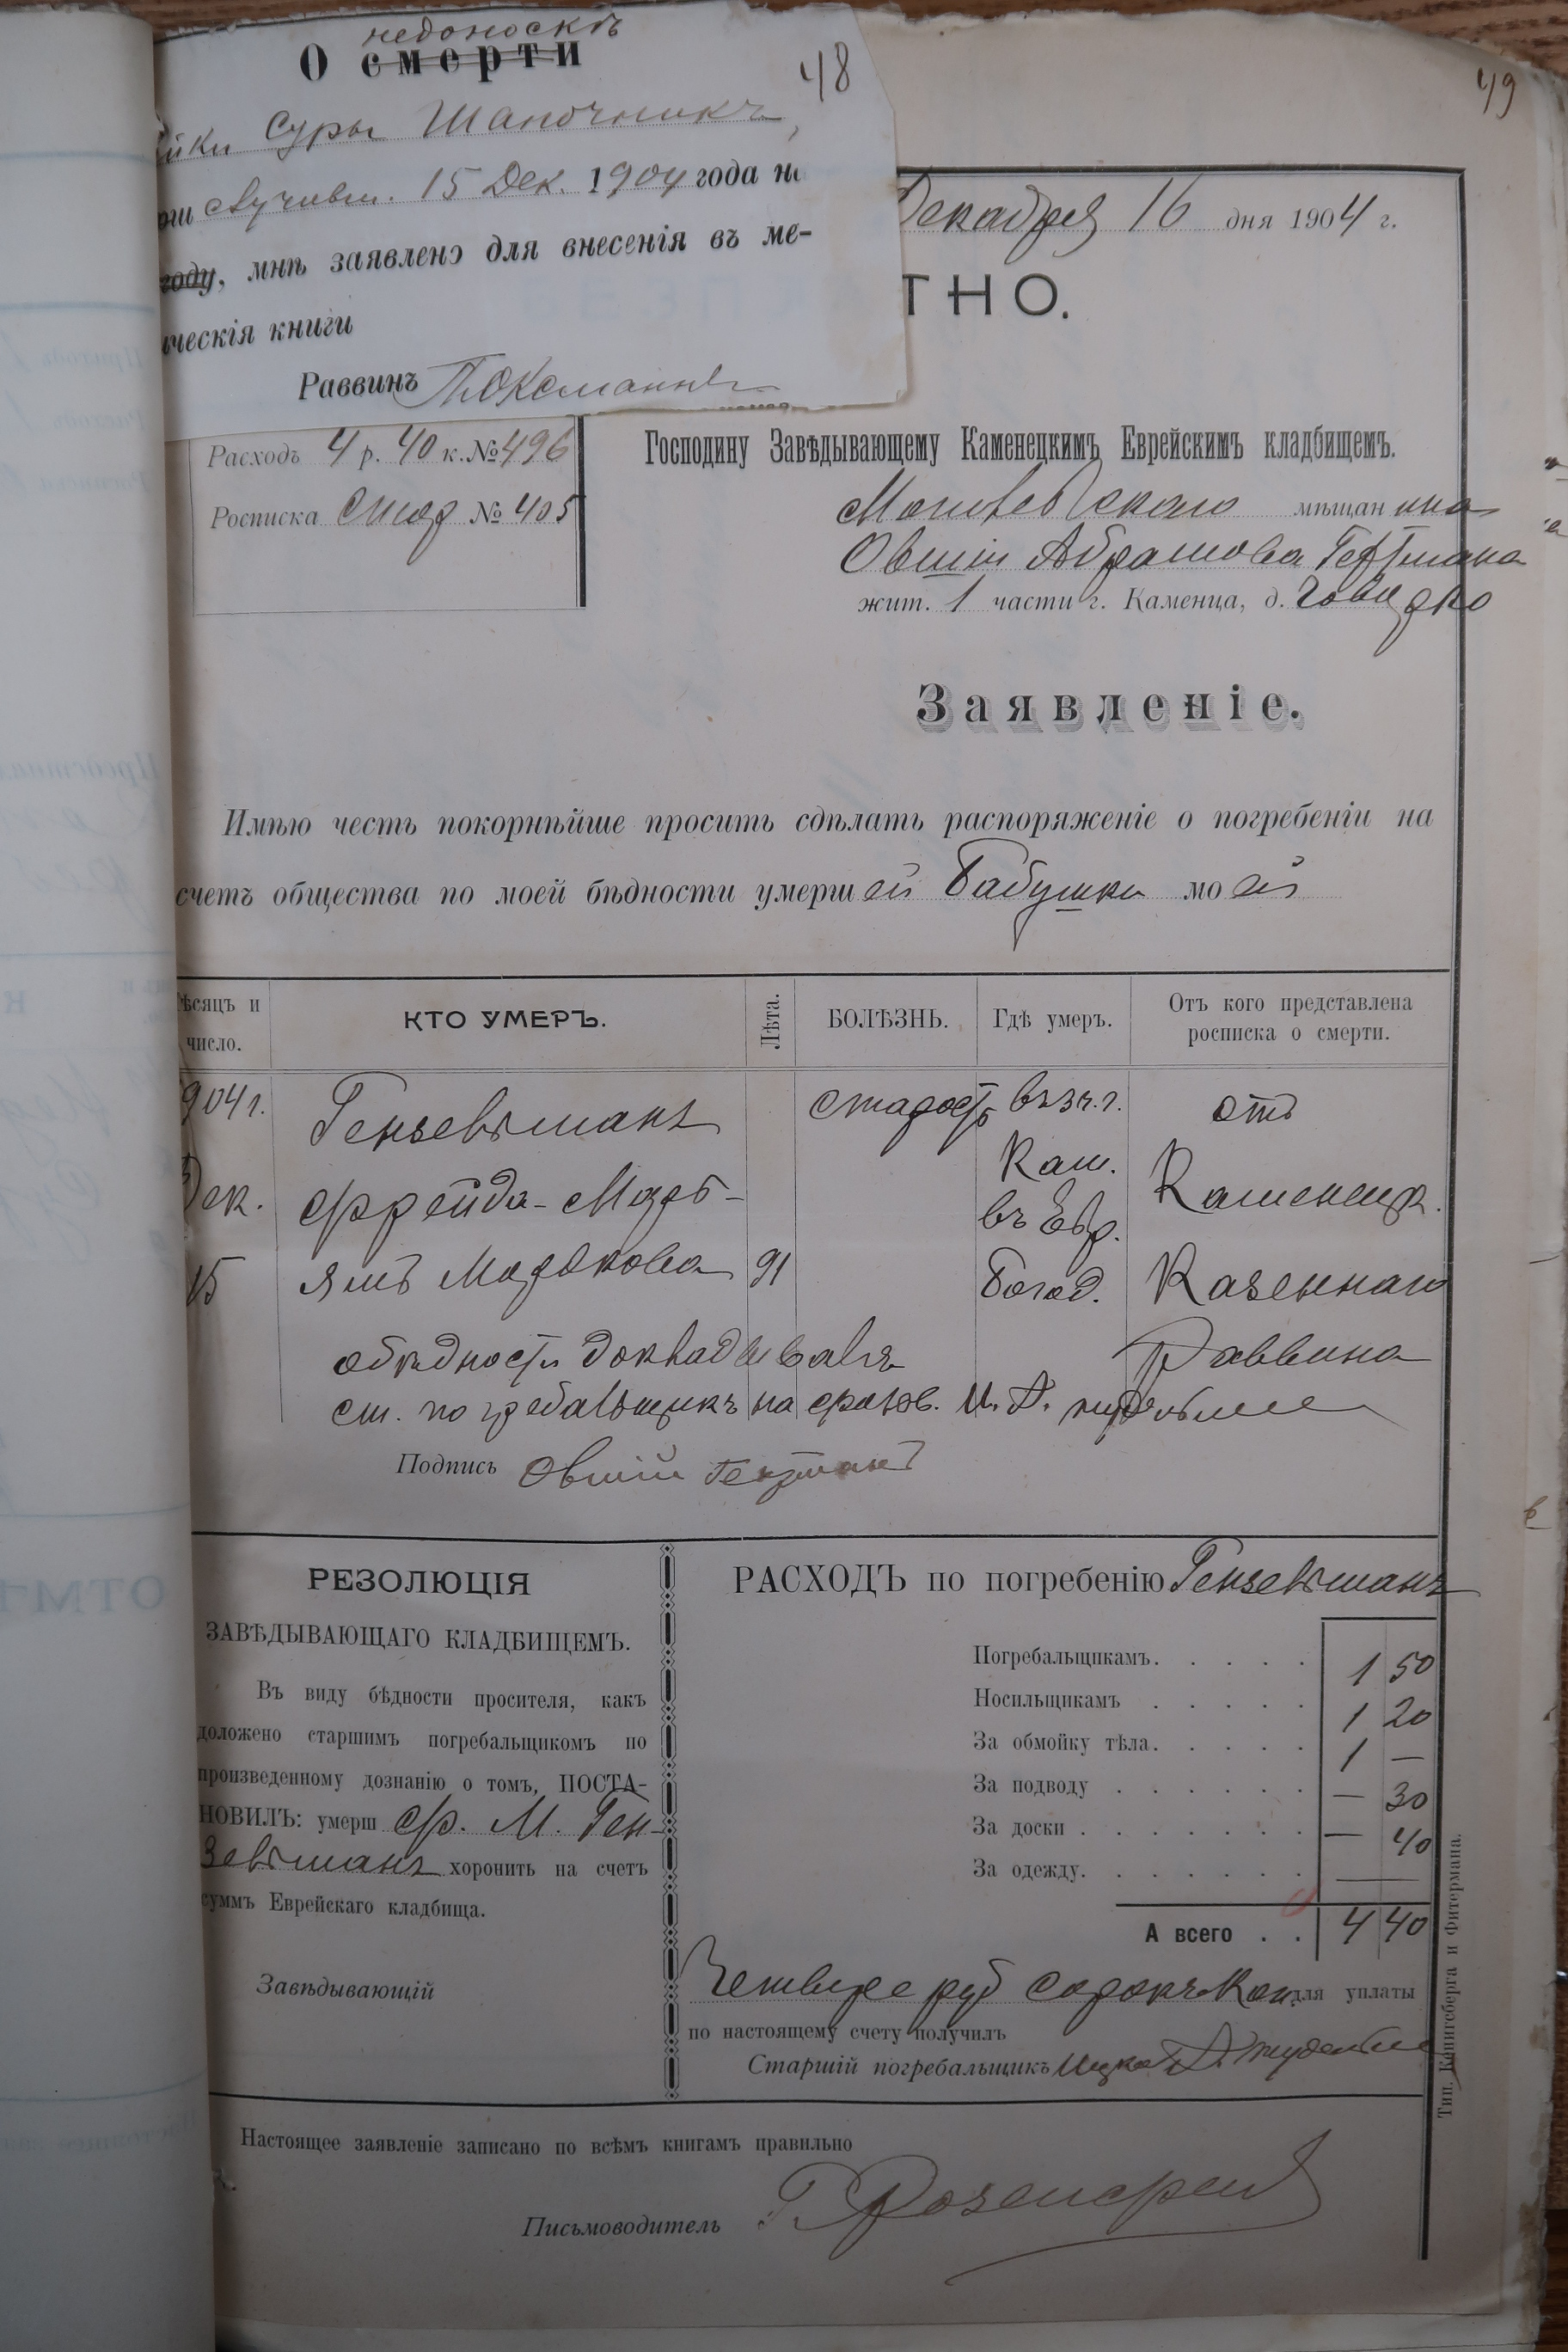 недоноскѣ
О смерти
48
49
йки Суры Шапочникъ,
случивш. 15 Дек. 1904 года на
году, мнѣ заявлено для внесенія въ ме-
ческія книги
Раввинъ
Декабря 16 дня 1904 г.
ТНО.
Расходъ 4 р. 40 к. № 496
Росписка № 405
Господину Завѣдывающему Каменецкимъ Еврейскимъ кладбищемъ.
Могилевскаго мѣщанина
Овшія Абрамова Гехтмана
жит. 1 части г. Каменца, д.
Заявленіе.
Имѣю честь покорнѣйше просить сдѣлать распоряженіе о погребеніи на
счетъ общества по моей бѣдности умершей бабушки моей
ѣсяцъ и число.
КТО УМЕРЪ.
Лѣта.
БОЛѢЗНЬ.
Гдѣ умеръ.
Отъ кого представлена росписка о смерти.
904 г. Гензельманъ старость въ г. отъ
Дек. Фрейда-Марь- Кам. въ Евр. Каменецк.
15 ямъ Мардкова 91 богод. Казеннаго
о бѣдности докладывалъ Раввина
ст. погребальщикъ на основ. И. Д.
Подпись Овшій Гехтманъ
РЕЗОЛЮЦІЯ
ЗАВѢДЫВАЮЩАГО КЛАДБИЩЕМЪ.
Въ виду бѣдности просителя, какъ
доложено старшимъ погребальщикомъ по
произведенному дознанію о томъ, ПОСТА-
НОВИЛЪ: умерш Ф. М. Ген-
зельманъ хоронить на счетъ
суммъ Еврейскаго кладбища.
Завѣдывающій
РАСХОДЪ по погребенію Гензельманъ
Погребальщикамъ. . . . . 1 50
Носильщикамъ . . . . . 1 20
За обмойку тѣла. . . . . 1 —
За подводу . . . . . . — 30
За доски . . . . . . . — 40
За одежду. . . . . . . —
А всего . . 4 40
Четыре руб сорокъ коп. для уплаты
по настоящему счету получилъ
Старшій погребальщикъ Ицко
Настоящее заявленіе записано по всѣмъ книгамъ правильно
Письмоводитель
Тип. Кенигсберга и Фитермана.